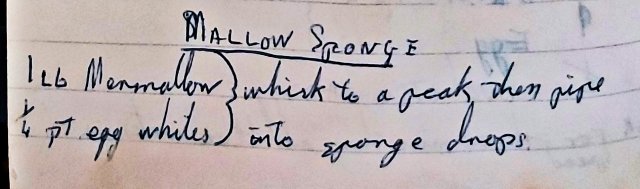 MALLOW SPONGE
1 LB Menmallow } whisk to a peak, then pipe
1/4 PT egg whites } into sponge drops.